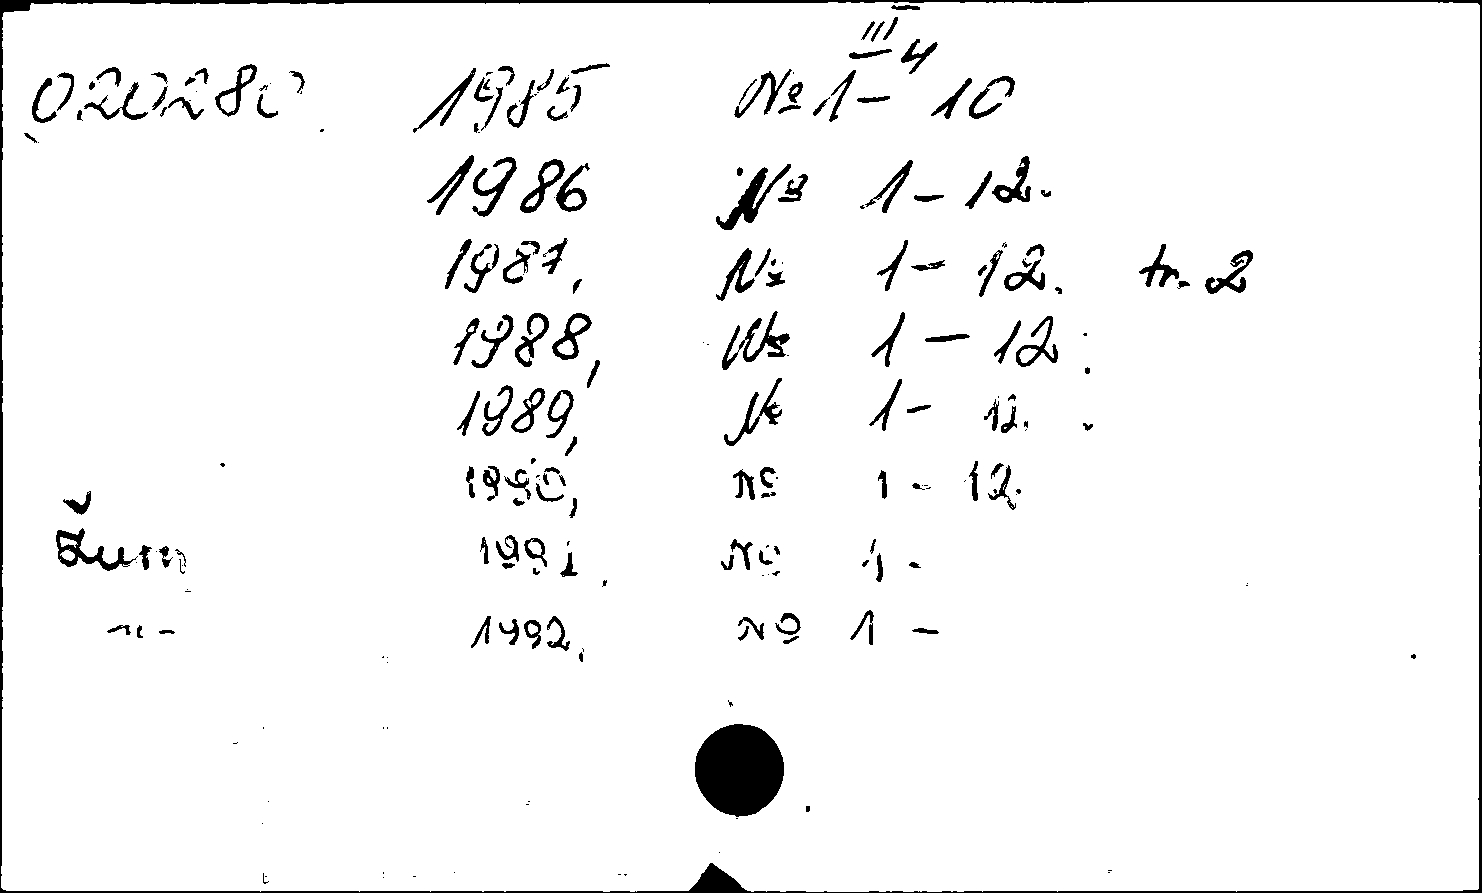 III 4
020280 1985 № 1 – 10
1986 № 1 – 12.
1987, № 1 – 12. tr. 2
1988, № 1 – 12.
1989, № 1 – 12.
1990, № 1 – 12.
1991. № 1 -
-"- 1992. № 1 –